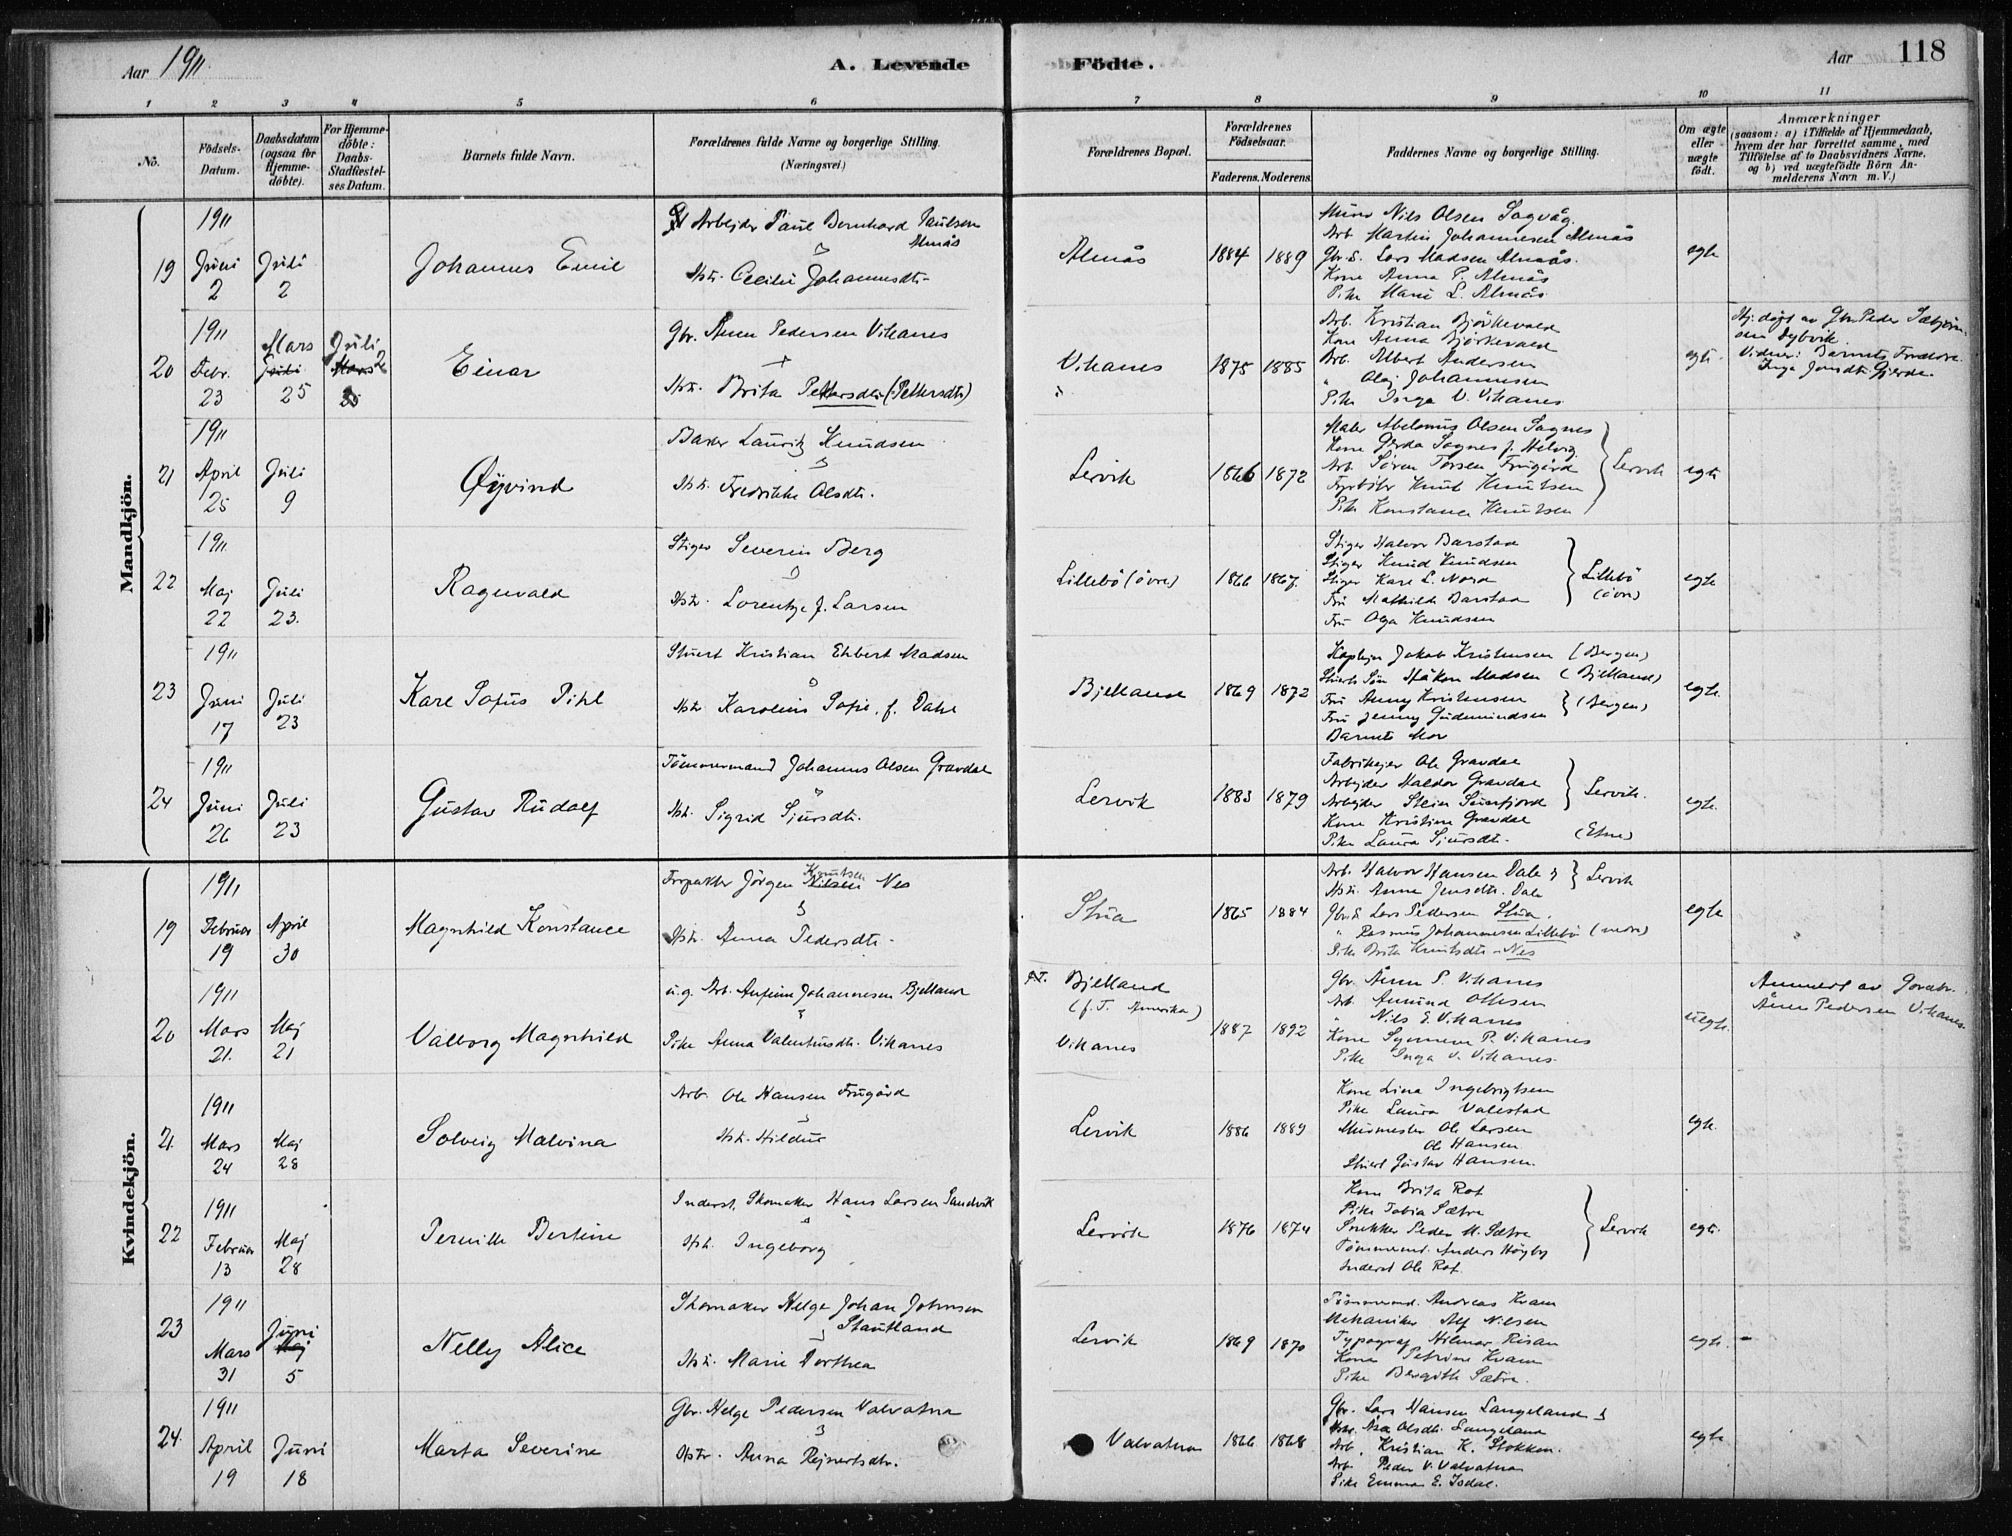 Aar 1911
A. Levende
Födte.
Aar
118
1 2 3 4 5 6 7 8 9 10 11
No.
Födsels-Datum.
Daabsdatum (ogsaa for Hjemme-döbte).
For Hjemme-döbte: Daabs-Stadfæstel-ses Datum.
Barnets fulde Navn.
Forældrenes fulde Navne og borgerlige Stilling.
(Næringsvei.)
Forældrenes Bopæl.
Forældrenes Födselsaar.
Faderens. Moderens.
Faddernes Navne og borgerlige Stilling.
Om ægte eller uægte födt.
Anmærkninger
(saasom: a) i Tilfælde af Hjemmedaab,
hvem der har forrettet samme, med
Tilföielse af to Daabsvidners Navne,
og b) ved uægtefödte Börn An-
melderens Navn m. V.)
Mandkjön.
19
1911
Juni 2
Juli 2
Johannes Emil
Arbejder Paul Bernhard Paulsen
Almås
Hstr. Cecilie Johannesdtr.
Almås
1884
1889
Murer Nils Olsen Sagvåg
Arb. Martin Johannesen Almås
Gbr.s. Lars Madsen Almås.
Kone Anna P. Almås
Pike Marie L. Almås
egte
20
1911
Febr. 23
Mars Juli 25
Juli 2 Mars 25
Einar
Gbr. Ånen Pedersen Vikanes
Hstr. Brita Pettersdtr (Pettersdtr)
Vikanes
1875
1885
Arb. Kristian Björkevald
Kone Anna Björkevald
Arb. Albert Andersen
" Olaj Johannesen
Pike Inga V. Vikanes
egte.
Hj.døpt av Gbr. Peder Sæbjørn-
sen Dybvik.
Vidner: Barnets Forældre.
Inga Jonsdtr. Gjerde.
21
1911
April 25
Juli 9
Øyvind
Baker Lauritz Knudsen
Hstr. Fredrikke Olsdtr.
Lervik
1866
1872
Maler Abelonius Olsen Sagnes
Kone Gerda Sagnes f. Helvig
Arb. Søren Torsen Frugård
Fyrbøter Knut Knutsen
Pike Konstance Knutsen
Lervik
egte
22
1911
Maj 22
Juli 23.
Ragnvald
Stiger Severin Berg
Hstr. Lorentze f. Larsen
Lillebö (övre)
1866
1867.
Stiger Halvor Barstad
Stiger Knud Knudsen
Stiger Karl L. Nord
Fru Mathilde Barstad
Fru Olga Knudsen
Lillebö
(övre)
egte
23
1911
Juni 17
Juli 23
Karl Sofus Pihl
Stuert Kristian Ehbert Madsen
Hstr Karoline Sofie, f. Dahl
Bjelland
1869
1872
Jakob Kristensen (Bergen)
Stuerts Søn Håkon Madsen (Bjelland)
Fru Anny Kristensen
Fru Jenny Gudmundsen
(Bergen)
Barnets Mor
egte.
24
1911
Juni 26
Juli 23
Gustav Rudolf
Tömmermand Johannes Olsen Gravdal
Hstr. Sigrid Sjursdtr.
Lervik
1883
1879
Fabrikejer Ole Gravdal
Arbejder Haldor Gravdal
Arbejder Stein Sunfjord
Kone Kristine Gravdal
Pike Laura Sjursdtr.
Lervik.
(Etne)
egte.
Kvindekjön.
19
1911
Februar 19
April 30
Magnhild Konstance
Forpakter Jörgen Knutsen Nilsen Nes
Hstr. Anna Pedersdtr.
Stua
1865
1884
Arb. Halvor Hansen Dale
Hstr. Anna Jensdtr. Dale
Lervik
Gbr.s. Lars Pedersen Stua.
" Rasmus Johannesen Lillebö (nedre)
Pike Brita Knutsdtr. Nes
egte
20
1911
Mars 21.
Maj 21
Valborg Magnhild
u.g. Arb. Anfinn Johannesen Bjelland
Pike Anna Valentinsdtr. Vikanes
Bjelland
(f.T. Amerika)
Vikanes
1887
1892
Gbr. Ånen P. Vikanes
Arb. Amund Ottesen
" Nils E. Vikanes
Kone Synneva P. Vikanes
Pike Inga V. Vikanes.
uegte.
Anmeldt av Gardbr.
Ånen Pedersen Vikanes.
21
1911
Mars 24
Maj 28
Solveig Malvina
Arb. Ole Hansen Frugård
Hstr. Hildur
Lervik
1886
1889
Kone Lina Ingebrigtsen
Pike Laura Valestad
Murmester Ole Larsen
Ole Hansen
Stuert Gustav Hansen.
egte.
22
1911
Februar 13
Maj 28
Pernille Bertine
Inderst, Skomaker Hans Larsen Sandvik
Hstr. Ingeborg
Lervik
1876
1874
Kone Brita Rot
Pike Tobia Sætre
Snekker Peder M. Sætre
Tömmermd. Anders Högby
Inderst Ole Rot.
Lervik
egte.
23
1911
Mars 31
Juni Maj 5
Nelly Alice
Skomaker Helge Johan Johnsen
Stautland
Hstr. Marie Dorthea
Lervik
1869
1870
Tömmermd. Andreas Kvam
Mekaniker Alf Nilsen
Typograf Hilmar Risan
Kone Petrine Kvam
Pike Bergithe Sætre.
egte.
24.
1911
April 19
Juni 18
Marta Severine
Gbr. Helge Pedersen Valvatna
Hstr. Anna Rejnertsdtr.
Valvatna
1866
1868
Gbr. Lars Hansen Langeland
Hstr. Åsa Olsdtr. Langeland
Arb. Kristian K. Stokken.
Arb. Peder V. Valvatna
Pike Emma E. Isdal.
egte